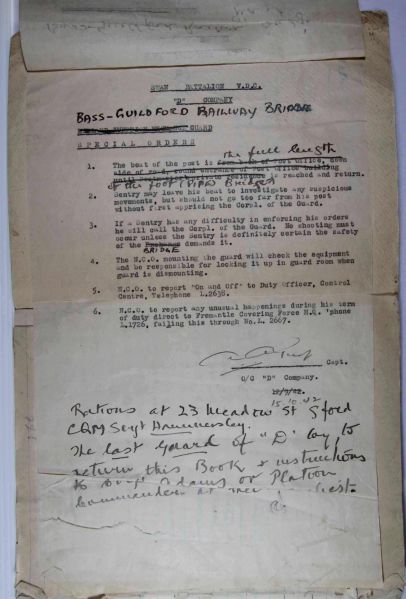 SWAN BATTALION V.D.C.
"D" COMPANY
BASS-GUILDFORD RAILWAY BRIDGE
GUARD
SPECIAL ORDERS
the full length
1. The beat of the post is from of Post Office, down
side of road, round entrance of Post Office building
until is reached and return.
of the foot (Pipe Bridge)
2. Sentry may leave his beat to investigate any suspicious
movements, but should not go too far from his post
without first apprising the Corpl. of the Guard.
3. If a Sentry has any difficulty in enforcing his orders
he will call the Corpl. of the Guard. No shooting must
occur unless the Sentry is definitely certain the safety
of the Exchange demands it.
BRIDGE
4. The N.C.O. mounting the guard will check the equipment
and be responsible for locking it up in guard room when
guard is dismounting.
5. N.C.O. to report "On and Off" to Duty Officer, Control
Centre, Telephone L.2638.
6. N.C.O. to report any unusual happenings during his term
of duty direct to Fremantle Covering Force H.Q. 'phone
L.1726, failing this through No.L. 2667.
Capt.
O/C "D" Company.
12/9/42.
15.10.42
Rations at 23 Meadow St Gford
CQM Sergt Hammersley.
The last guard of "D" Coy to
return this Book & instructions
to Adams or Platoon
Commander at